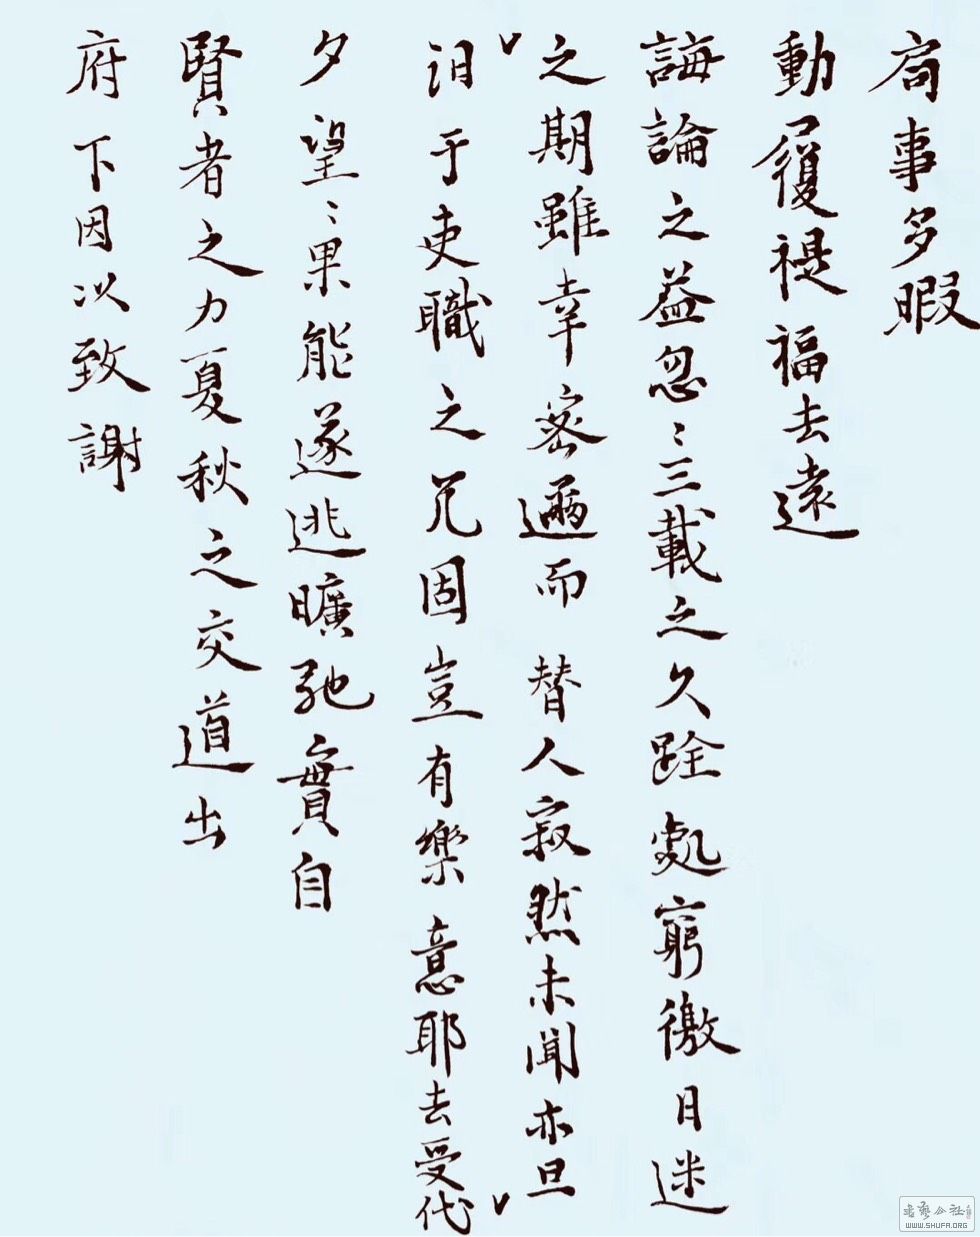 局事多暇
動履禔福去遠
誨論之益忽〻三載之久跧處窮徼日迷
之期雖幸密邇而替人寂然未聞亦旦
汩于吏職之冗固豈有樂意耶去受代
夕望〻果能遂逃曠弛實自
賢者之力夏秋之交道出
府下因以致謝
WWW.SHUFA.ORG